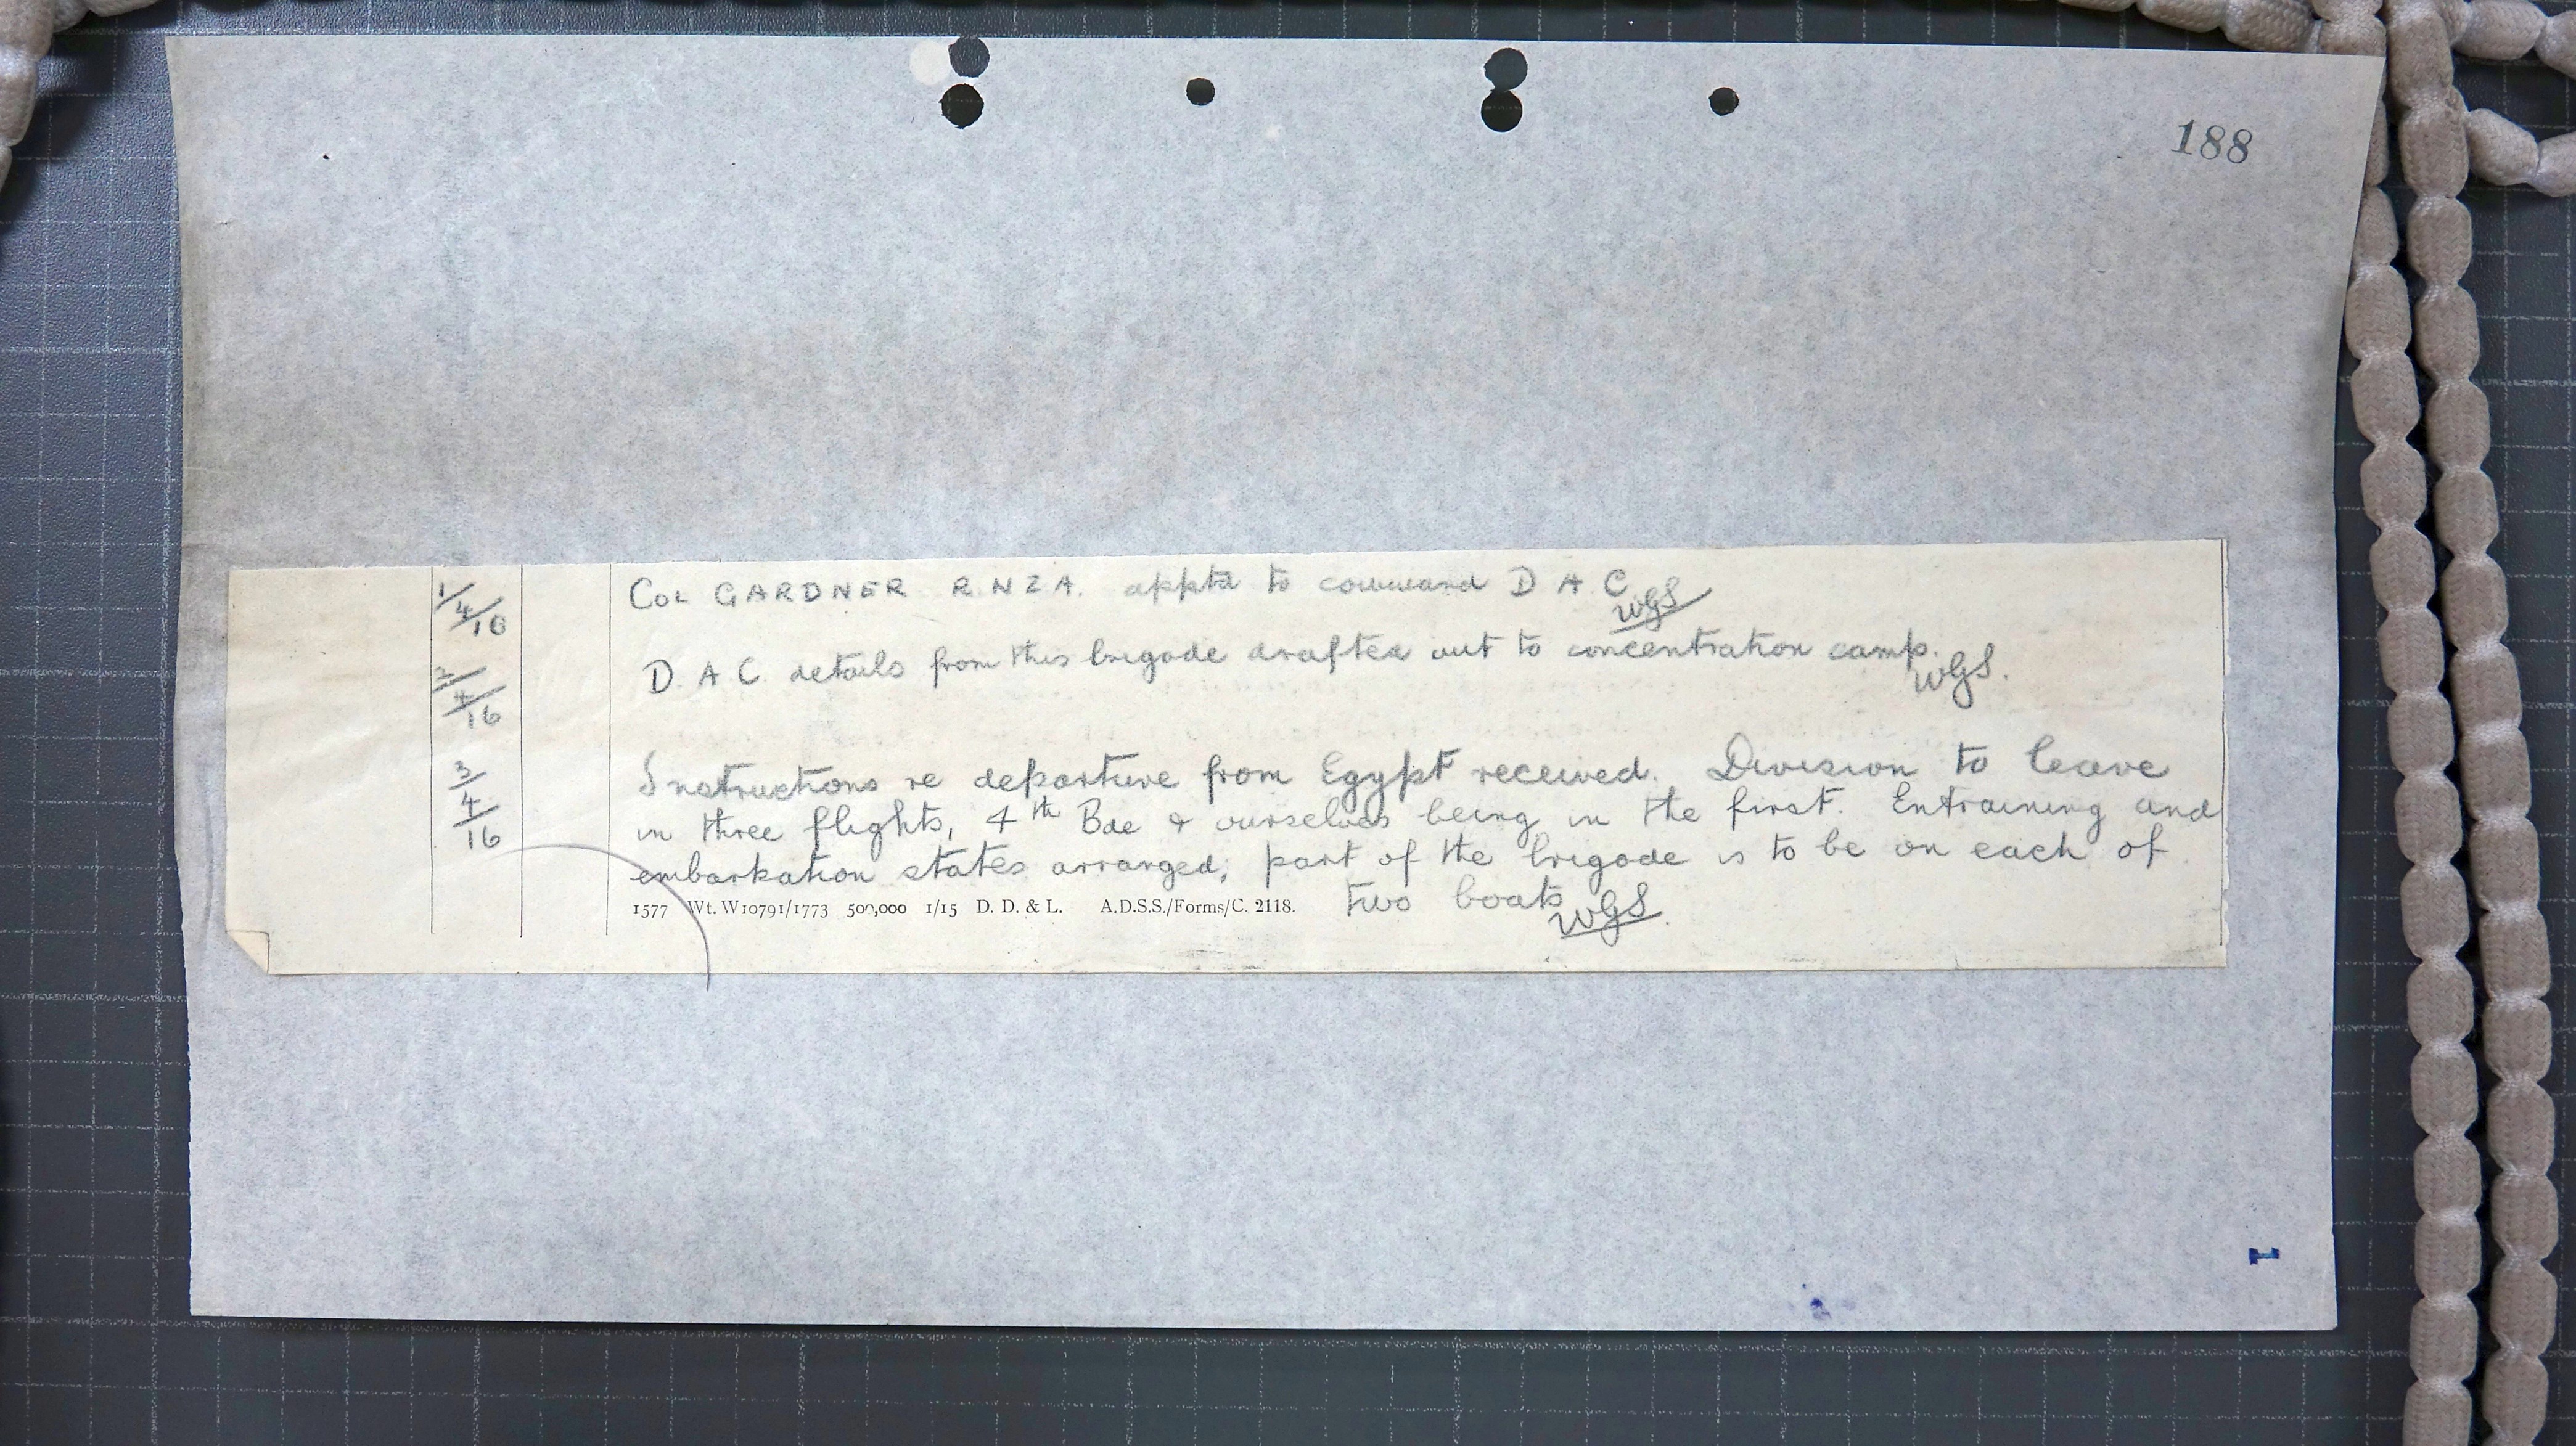 188
1/4/16 COL GARDNER R.N.Z.A. apptd to command D A C.
WGS
2/4/16 D. A C. details from this brigade drafted out to concentration camp.
WGS.
3/4/16 Instructions re departure from Egypt received. Division to leave
in three flights, 4th Bde & ourselves being in the first. Entraining and
embarkation states arranged, part of the brigade is to be on each of
two boats
WGS.
1577 Wt. W10791/1773 500,000 1/15 D. D. & L. A.D.S.S./Forms/C. 2118.
1